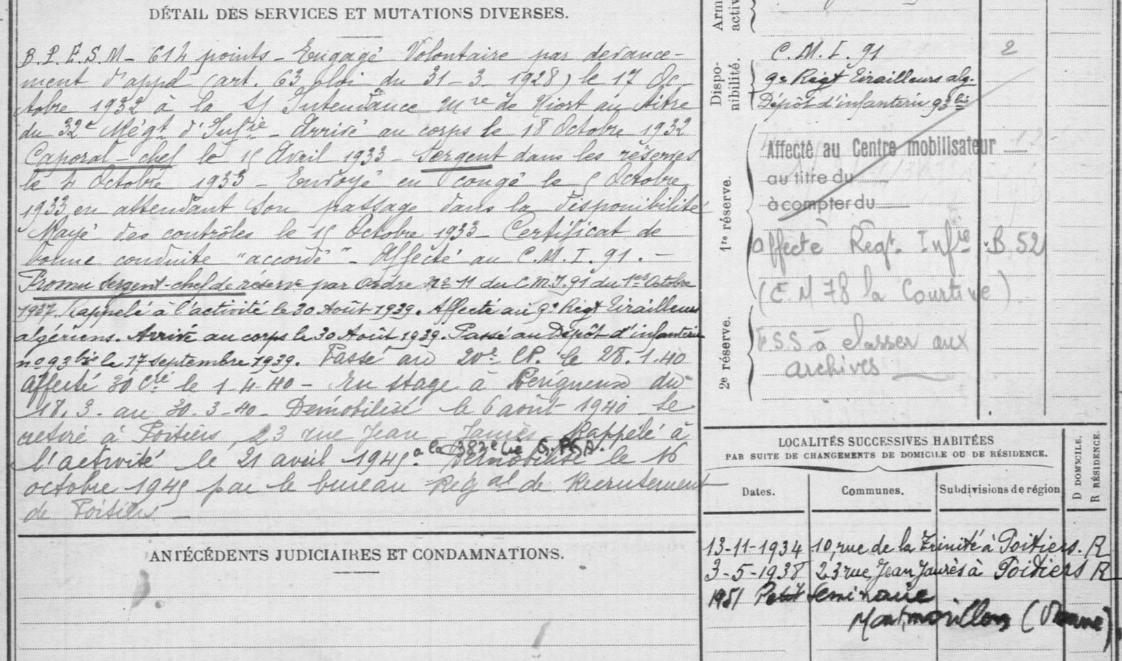 DÉTAIL DES SERVICES ET MUTATIONS DIVERSES.
B.P.E.S.M - 614 points - Engagé Volontaire par devance-
ment d'appel (art. 63 loi du 31-3-1928) le 17 Oc-
tobre 1932 à la S/ Intendance Mre de Niort au titre
du 32e Régt d'Infie - Arrivé au corps le 18 Octobre 1932
Caporal-chef le 15 Avril 1933 - Sergent dans les réserves
le 4 Octobre 1933 - Envoyé en congé le 5 Octobre
1933 en attendant son passage dans la disponibilité
Rayé des contrôles le 15 Octobre 1933 - Certificat de
bonne conduite "accordé" - Affecté au C.M.I. 91. -
Promu Sergent-chef de réserve par ordre No 11 du C.M.I. 91 du 1er Octobre
1937. Rappelé à l'activité le 30 Août 1939. Affecté au 9e Rigt Tirailleurs
algériens. Arrivé au corps le 30 Août 1939. Passé au Dépôt d'infanterie
no 93 bis le 17 septembre 1939. Passé au 20e CP. le 28.1.40
affecté 30 Cie le 1.4.40 - En stage à Périgueux du
18.3. au 30.3.40 - Démobilisé le 6 août 1940 se
retire à Poitiers, 23 rue Jean Jaurès. Rappelé à
l'activité le 21 avril 1945 à la 382e Cie Démobilisé le 16
octobre 1945 par le bureau Rég al de Recrutement
de Poitiers -
ANTÉCÉDENTS JUDICIAIRES ET CONDAMNATIONS.
Arm
activ
Dispo-
nibilité.
C.M.I. 91 2
9e Rigt Tirailleurs alg.
Dépôt d'infanterie 93 bis
1re réserve.
Affecté au Centre mobilisateur
au titre du
à compter du
affecté Régt. Infie B.52
(C.M 78 la Courtine)
2e réserve.
F.S.S à classer aux
archives
LOCALITÉS SUCCESSIVES HABITÉES
PAR SUITE DE CHANGEMENTS DE DOMICILE OU DE RÉSIDENCE.
D DOMICILE.
R RÉSIDENCE.
Dates. Communes. Subdivisions de région
13-11-1934 10, rue de la Trinité à Poitiers. R
3-5-1938 23 rue Jean Jaurès à Poitiers R
1951 Petit Séminaire
Montmorillon (Vienne)